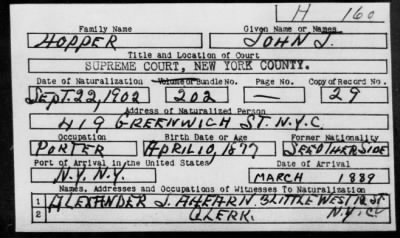 H 160
Family Name Given Name or Names
HOPPER JOHN J.
Title and Location of Court
SUPREME COURT, NEW YORK COUNTY.
Date of Naturalization Volume or Bundle No. Page No. Copy of Record No.
SEPT. 22, 1902 202 — 29
Address of Naturalized Person
419 GREENWICH ST. N.Y.C.
Occupation Birth Date or Age Former Nationality
PORTER APRIL 10, 1877 SEE OTHER SIDE
Port of Arrival in the United States Date of Arrival
N.Y. N.Y. MARCH 1889
Names, Addresses and Occupations of Witnesses To Naturalization
1 ALEXANDER J. AHEARN. 8 LITTLE WEST 12 ST
2 CLERK. N.Y.C.